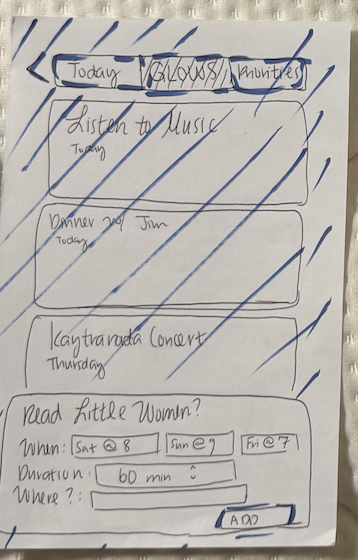 Today Priorities
Listen to Music
Today
Dinner w/ Jim
Today
Kaytranada Concert
Thursday
Read Little Women?
When: Sat @ 8 Sun @ 9 Fri @ 7
Duration: 60 min
Where?:
ADD